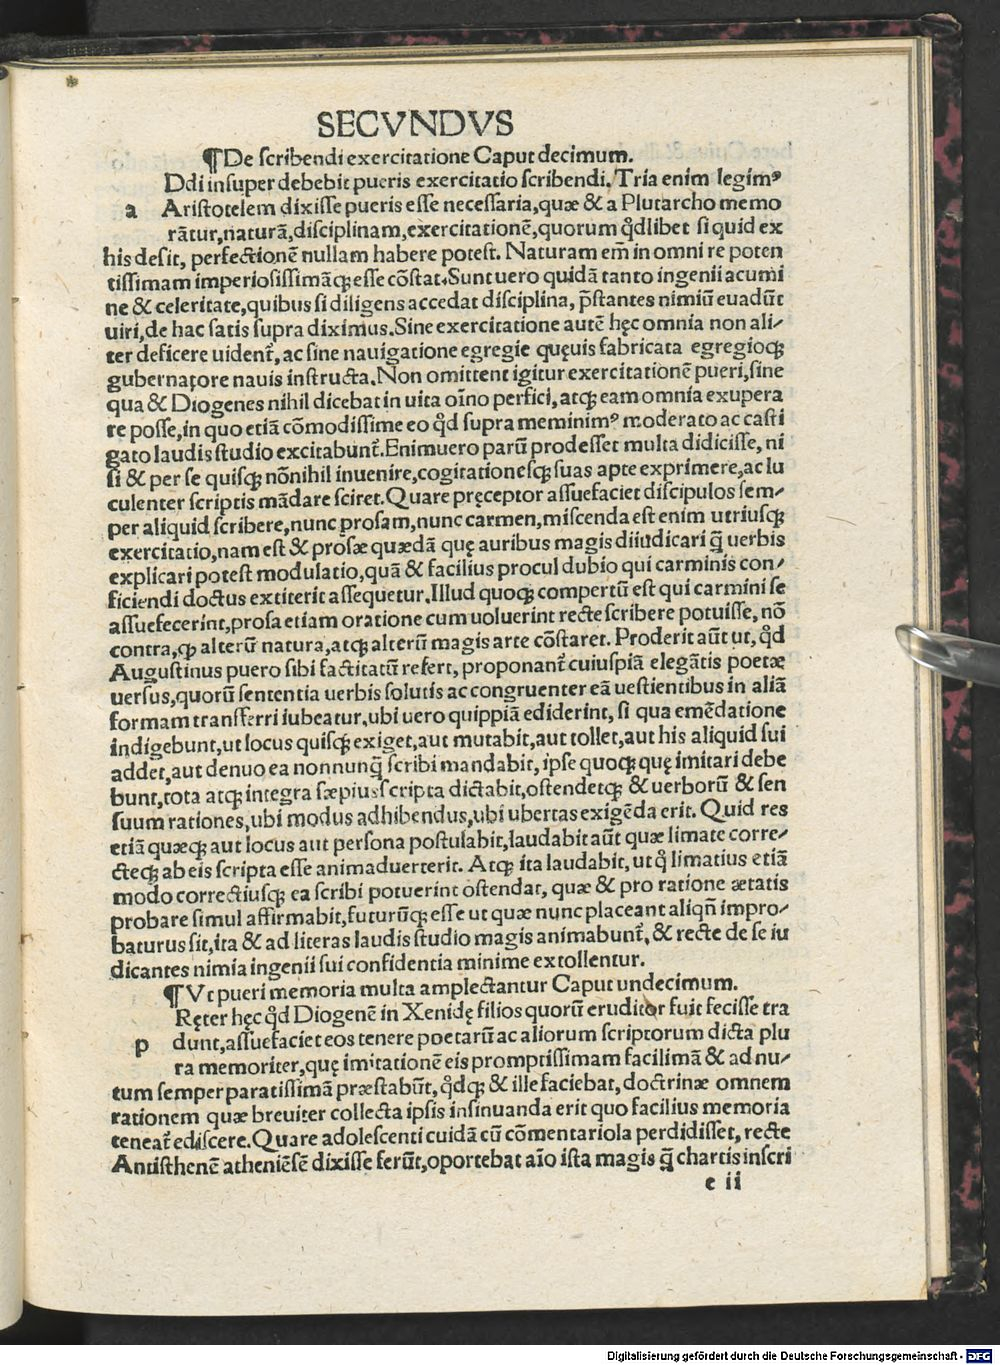 SECVNDVS
¶De scribendi exercitatione Caput decimum.
Ddi insuper debebit pueris exercitatio scribendi. Tria enim legimꝰ
a Aristotelem dixisse pueris esse necessaria, quæ & a Plutarcho memo
rātur, naturā, disciplinam, exercitationē, quorum qđlibet si quid ex
his desit, perfectionē nullam habere potest. Naturam em̄ in omni re poten
tissimam imperiosissimāqꝫ esse cōstat. Sunt uero quidā tanto ingenii acumi
ne & celeritate, quibus si diligens accedat disciplina, p̄stantes nimiū euadūt
uiri, de hac satis supra diximus. Sine exercitatione autē hęc omnia non ali/
ter deficere uident̄, ac sine nauigatione egregie quęuis fabricata egregioqꝫ
gubernatore nauis instructa. Non omittent igitur exercitationē pueri, sine
qua & Diogenes nihil dicebat in uita oīno perfici, atqꝫ eam omnia exupera
re posse, in quo etiā cōmodissime eo qđ supra meminimꝰ moderato ac casti
gato laudis studio excitabunt̄. Enimuero parū prodesset multa didicisse, ni
si & per se quisqꝫ nōnihil inuenire, cogitationesqꝫ suas apte exprimere, ac lu
culenter scriptis mādare sciret. Quare pręceptor assuefaciet discipulos sem/
per aliquid scribere, nunc prosam, nunc carmen, miscenda est enim utriusqꝫ
exercitatio, nam est & prosæ quædā quę auribus magis diiudicari q̄ uerbis
explicari potest modulatio, quā & facilius procul dubio qui carminis con/
ficiendi doctus extiterit assequetur. Illud quoqꝫ compertū est qui carmini se
assuefecerint, prosa etiam oratione cum uoluerint recte scribere potuisse, nō
contra, ꝙ alterū natura, atqꝫ alterū magis arte cōstaret. Proderit aūt ut, qđ
Augustinus puero sibi factitatū refert, proponant̄ cuiuspiā elegātis poetæ
uersus, quorū sententia uerbis solutis ac congruenter eā uestientibus in aliā
formam transferri iubeatur, ubi uero quippiā ediderint, si qua emēdatione
indigebunt, ut locus quisqꝫ exiget, aut mutabit, aut tollet, aut his aliquid sui
addet, aut denuo ea nonnunq̄ scribi mandabit, ipse quoqꝫ quę imitari debe
bunt, tota atqꝫ integra sæpius scripta dictabit, ostendetqꝫ & uerborū & sen
suum rationes, ubi modus adhibendus, ubi ubertas exigēda erit. Quid res
etiā quæqꝫ aut locus aut persona postulabit, laudabit aūt quæ limate corre/
cteqꝫ ab eis scripta esse animaduerterit. Atqꝫ ita laudabit, ut q̊ limatius etiā
modo correctiusqꝫ ea scribi potuerint ostendat, quæ & pro ratione ætatis
probare simul affirmabit, futurūqꝫ esse ut quæ nunc placeant aliqn̄ impro/
baturus sit, ita & ad literas laudis studio magis animabunt̄, & recte de se iu
dicantes nimia ingenii sui confidentia minime extollentur.
¶Vt pueri memoria multa amplectantur Caput undecimum.
Ręter hęc qđ Diogenē in Xenidę filios quorū eruditor fuit fecisse tra
p dunt, assuefaciet eos tenere poetarū ac aliorum scriptorum dicta plu
ra memoriter, quę imitationē eis promptissimam facilimā & ad nu/
tum semper paratissimā præstabūt, qđqꝫ & ille faciebat, doctrinæ omnem
rationem quæ breuiter collecta ipsis insinuanda erit quo facilius memoria
teneat̄ ediscere. Quare adolescenti cuidā cū cōmentariola perdidisset, recte
Antisthenē atheniēsē dixisse ferūt, oportebat aīo ista magis q̄ chartis inscri
e ii
Digitalisierung gefördert durch die Deutsche Forschungsgemeinschaft - DFG